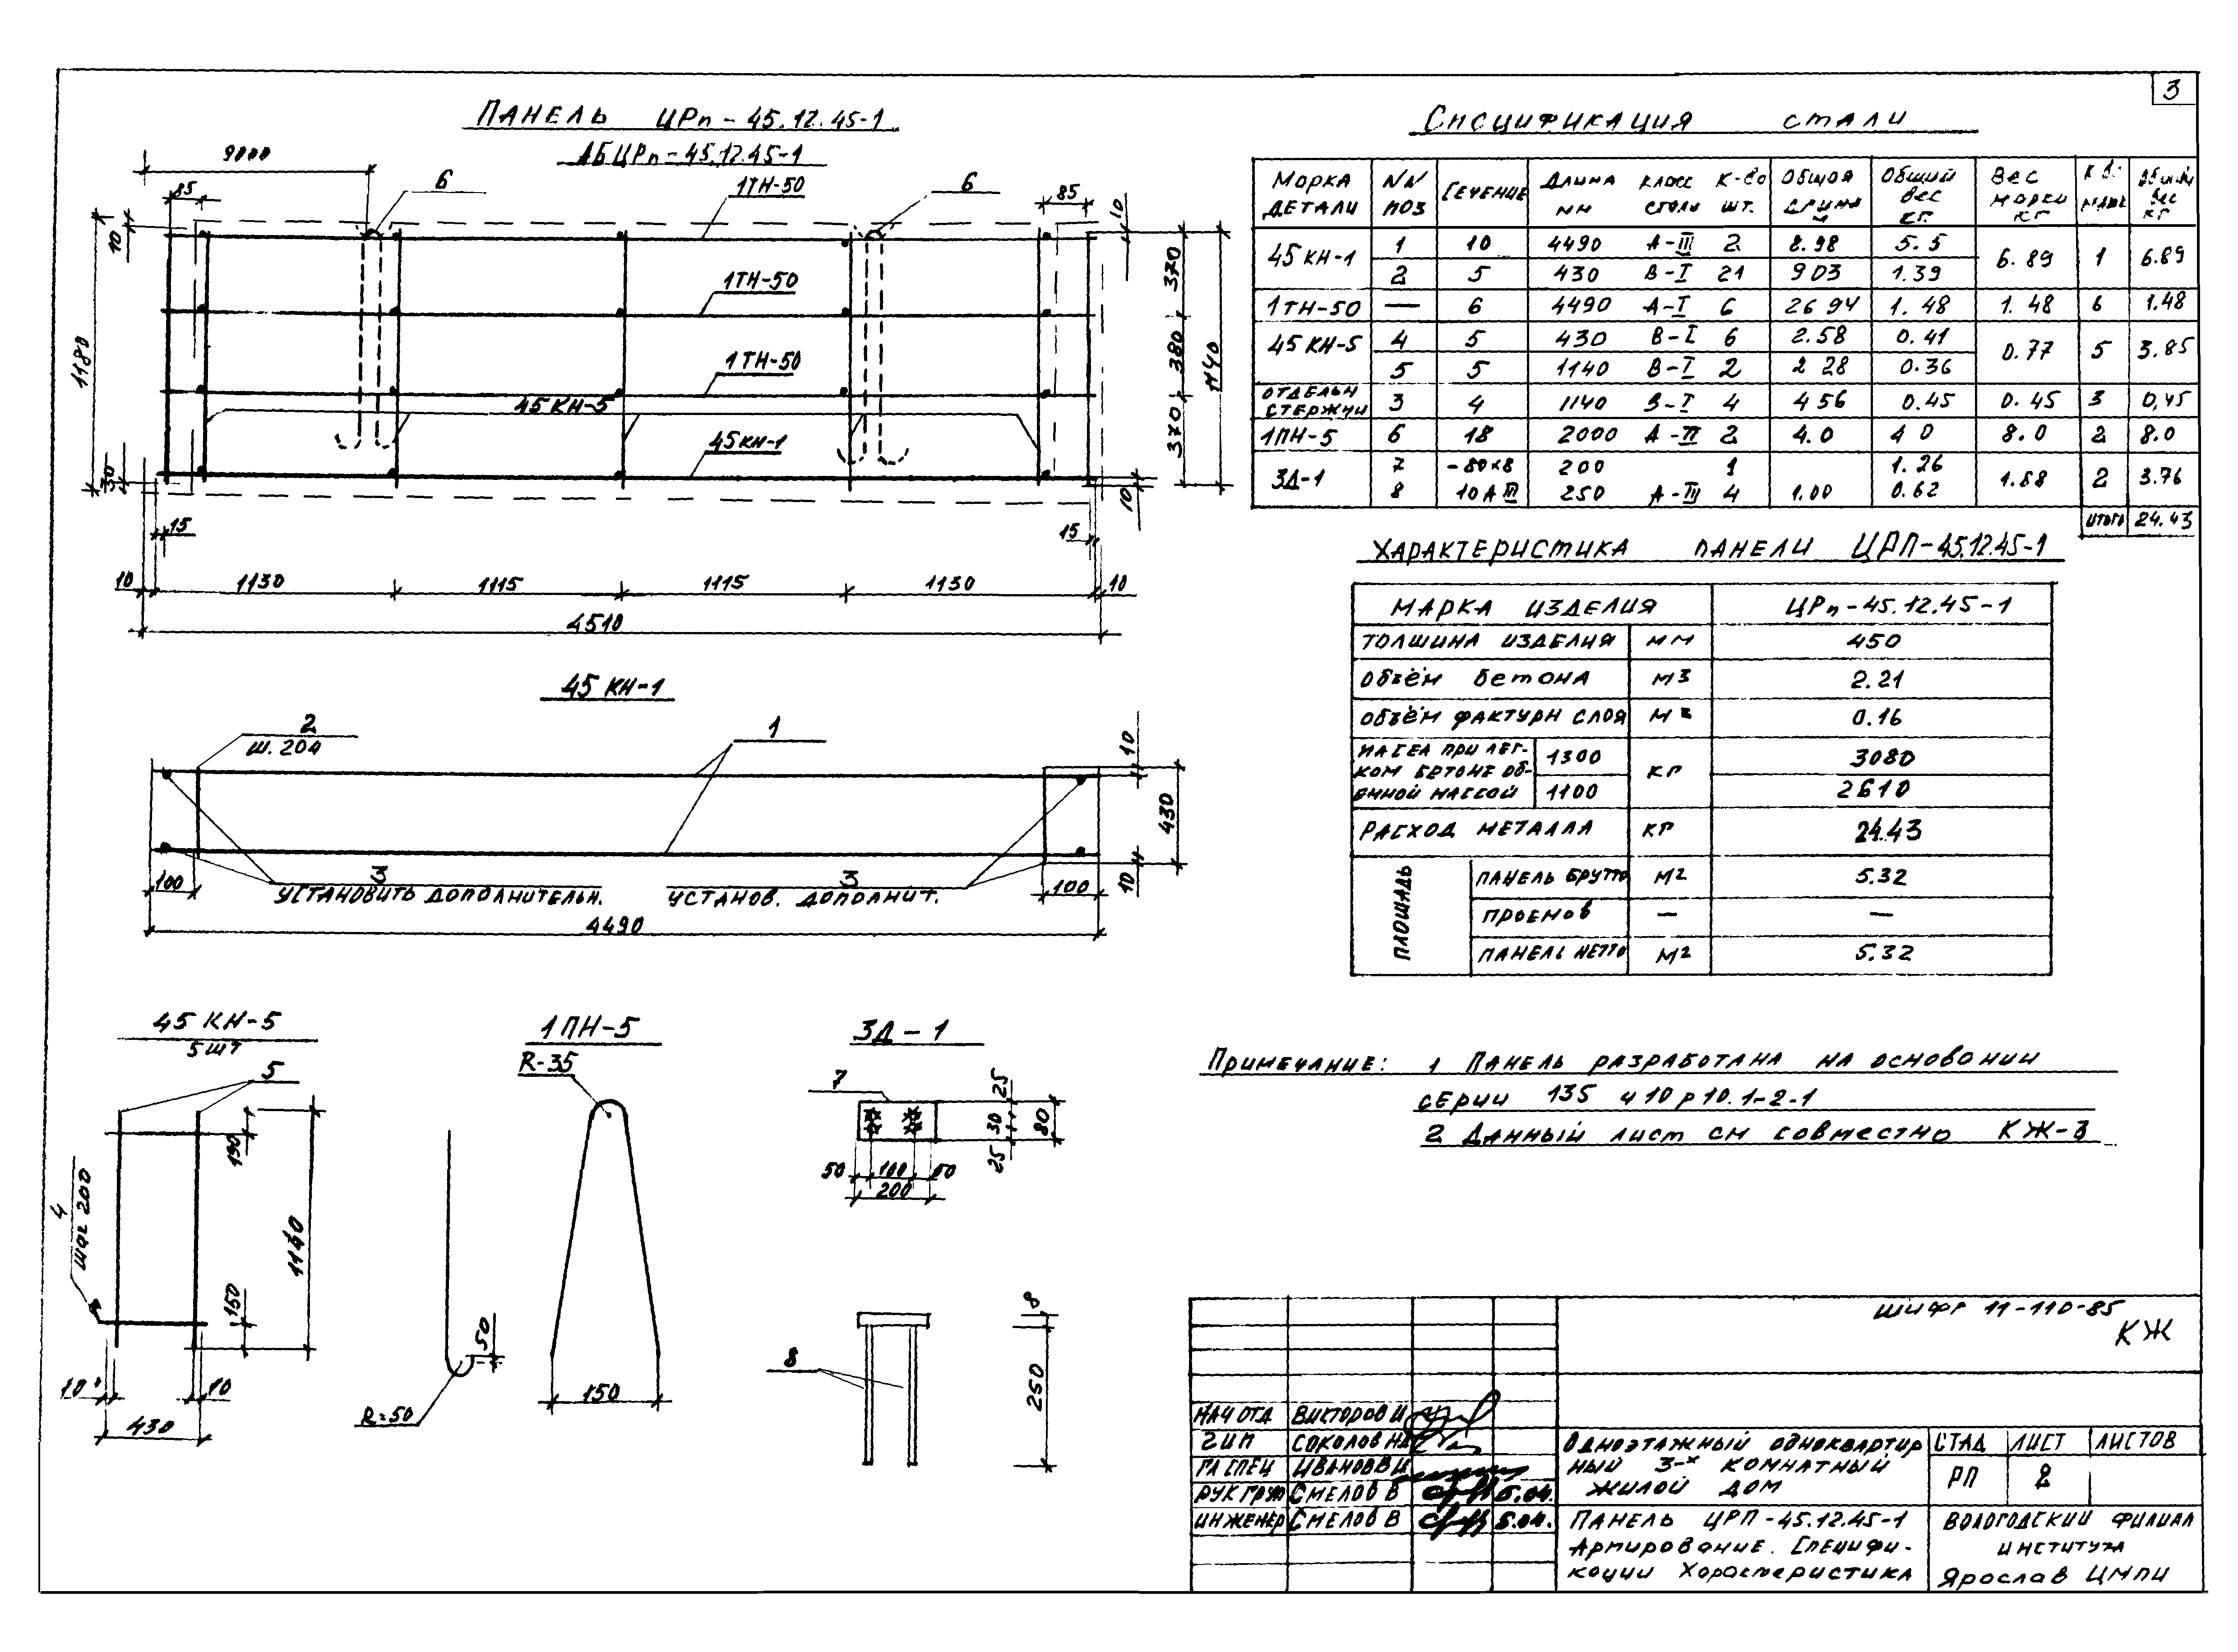 3
ПАНЕЛЬ ЦРп-45.12.45-1
АБЦРп-45.12.45-1
9000
85
6
1ТН-50
6
85
10
10
1180
1ТН-50
370
1ТН-50
380
1140
45КН-5
45КН-1
370
30
10
15
15
10
1130
1115
1115
1130
10
4510
45 КН-1
2
Ш. 204
1
10
430
3
3
100
УСТАНОВИТЬ ДОПОЛНИТЕЛЬН.
УСТАНОВ. ДОПОЛНИТ.
100
10
4490
45 КН-5
5 ШТ
5
4
шаг 200
1140
150
10
10
430
1ПН-5
R-35
50
R=50
150
3Д-1
7
25
30
25
80
50
100
50
200
8
8
250
Спецификация стали
Марка детали | NN поз | Сечение | Длина мм | класс стали | к-во шт. | Общая длина м | Общий вес кг. | Вес марки кг | к-в. марок | Общий вес кг
45КН-1 | 1 | 10 | 4490 | А-III | 2 | 8.98 | 5.5 | 6.89 | 1 | 6.89
2 | 5 | 430 | В-I | 21 | 903 | 1.39
1ТН-50 | — | 6 | 4490 | А-I | 6 | 26 94 | 1.48 | 1.48 | 6 | 1.48
45КН-5 | 4 | 5 | 430 | В-I | 6 | 2.58 | 0.41 | 0.77 | 5 | 3.85
5 | 5 | 1140 | В-I | 2 | 2 28 | 0.36
ОТДЕЛЬН СТЕРЖНИ | 3 | 4 | 1140 | В-I | 4 | 4 56 | 0.45 | 0.45 | 3 | 0,45
1ПН-5 | 6 | 18 | 2000 | А-II | 2 | 4.0 | 4 0 | 8.0 | 2 | 8.0
3Д-1 | 7 | -80×8 | 200 | 1 | 1.26 | 1.88 | 2 | 3.76
8 | 10АIII | 250 | А-III | 4 | 1.00 | 0.62
ИТОГО | 24.43
ХАРАКТЕРИСТИКА ПАНЕЛИ ЦРП-45.12.45-1
МАРКА ИЗДЕЛИЯ | ЦРп-45.12.45-1
ТОЛШИНА ИЗДЕЛИЯ | мм | 450
Объём бетона | м3 | 2.21
Объём фактурн слоя | м3 | 0.16
МАССА ПРИ ЛЕГКОМ БЕТОНЕ ОБЪЕМНОЙ МАССОЙ | 1300 | кг | 3080
1100 | 2610
РАСХОД МЕТАЛЛА | кг | 24.43
ПЛОЩАДЬ | ПАНЕЛЬ БРУТТО | м2 | 5.32
ПРОЕМОВ | — | —
ПАНЕЛЬ НЕТТО | м2 | 5.32
Примечание: 1 Панель разработана на основании
серии 135 и 10р10.1-2-1
2 Данный лист см совместно КЖ-3
шифр 11-110-85
КЖ
НАЧ ОТД ВИКТОРОВ И
ГИП СОКОЛОВ НА
ГЛ СПЕЦ ИВАНОВ В И
РУК ГРУП СМЕЛОВ В 5.04.
ИНЖЕНЕР СМЕЛОВ В 5.04.
Одноэтажный одноквартирный 3-х комнатный жилой дом
СТАД | ЛИСТ | ЛИСТОВ
РП | 2
ПАНЕЛЬ ЦРП-45.12.45-1
Армирование. Спецификации Характеристика
ВОЛОГОДСКИЙ ФИЛИАЛ
ИНСТИТУТА
ЯРОСЛАВ ЦМПИ